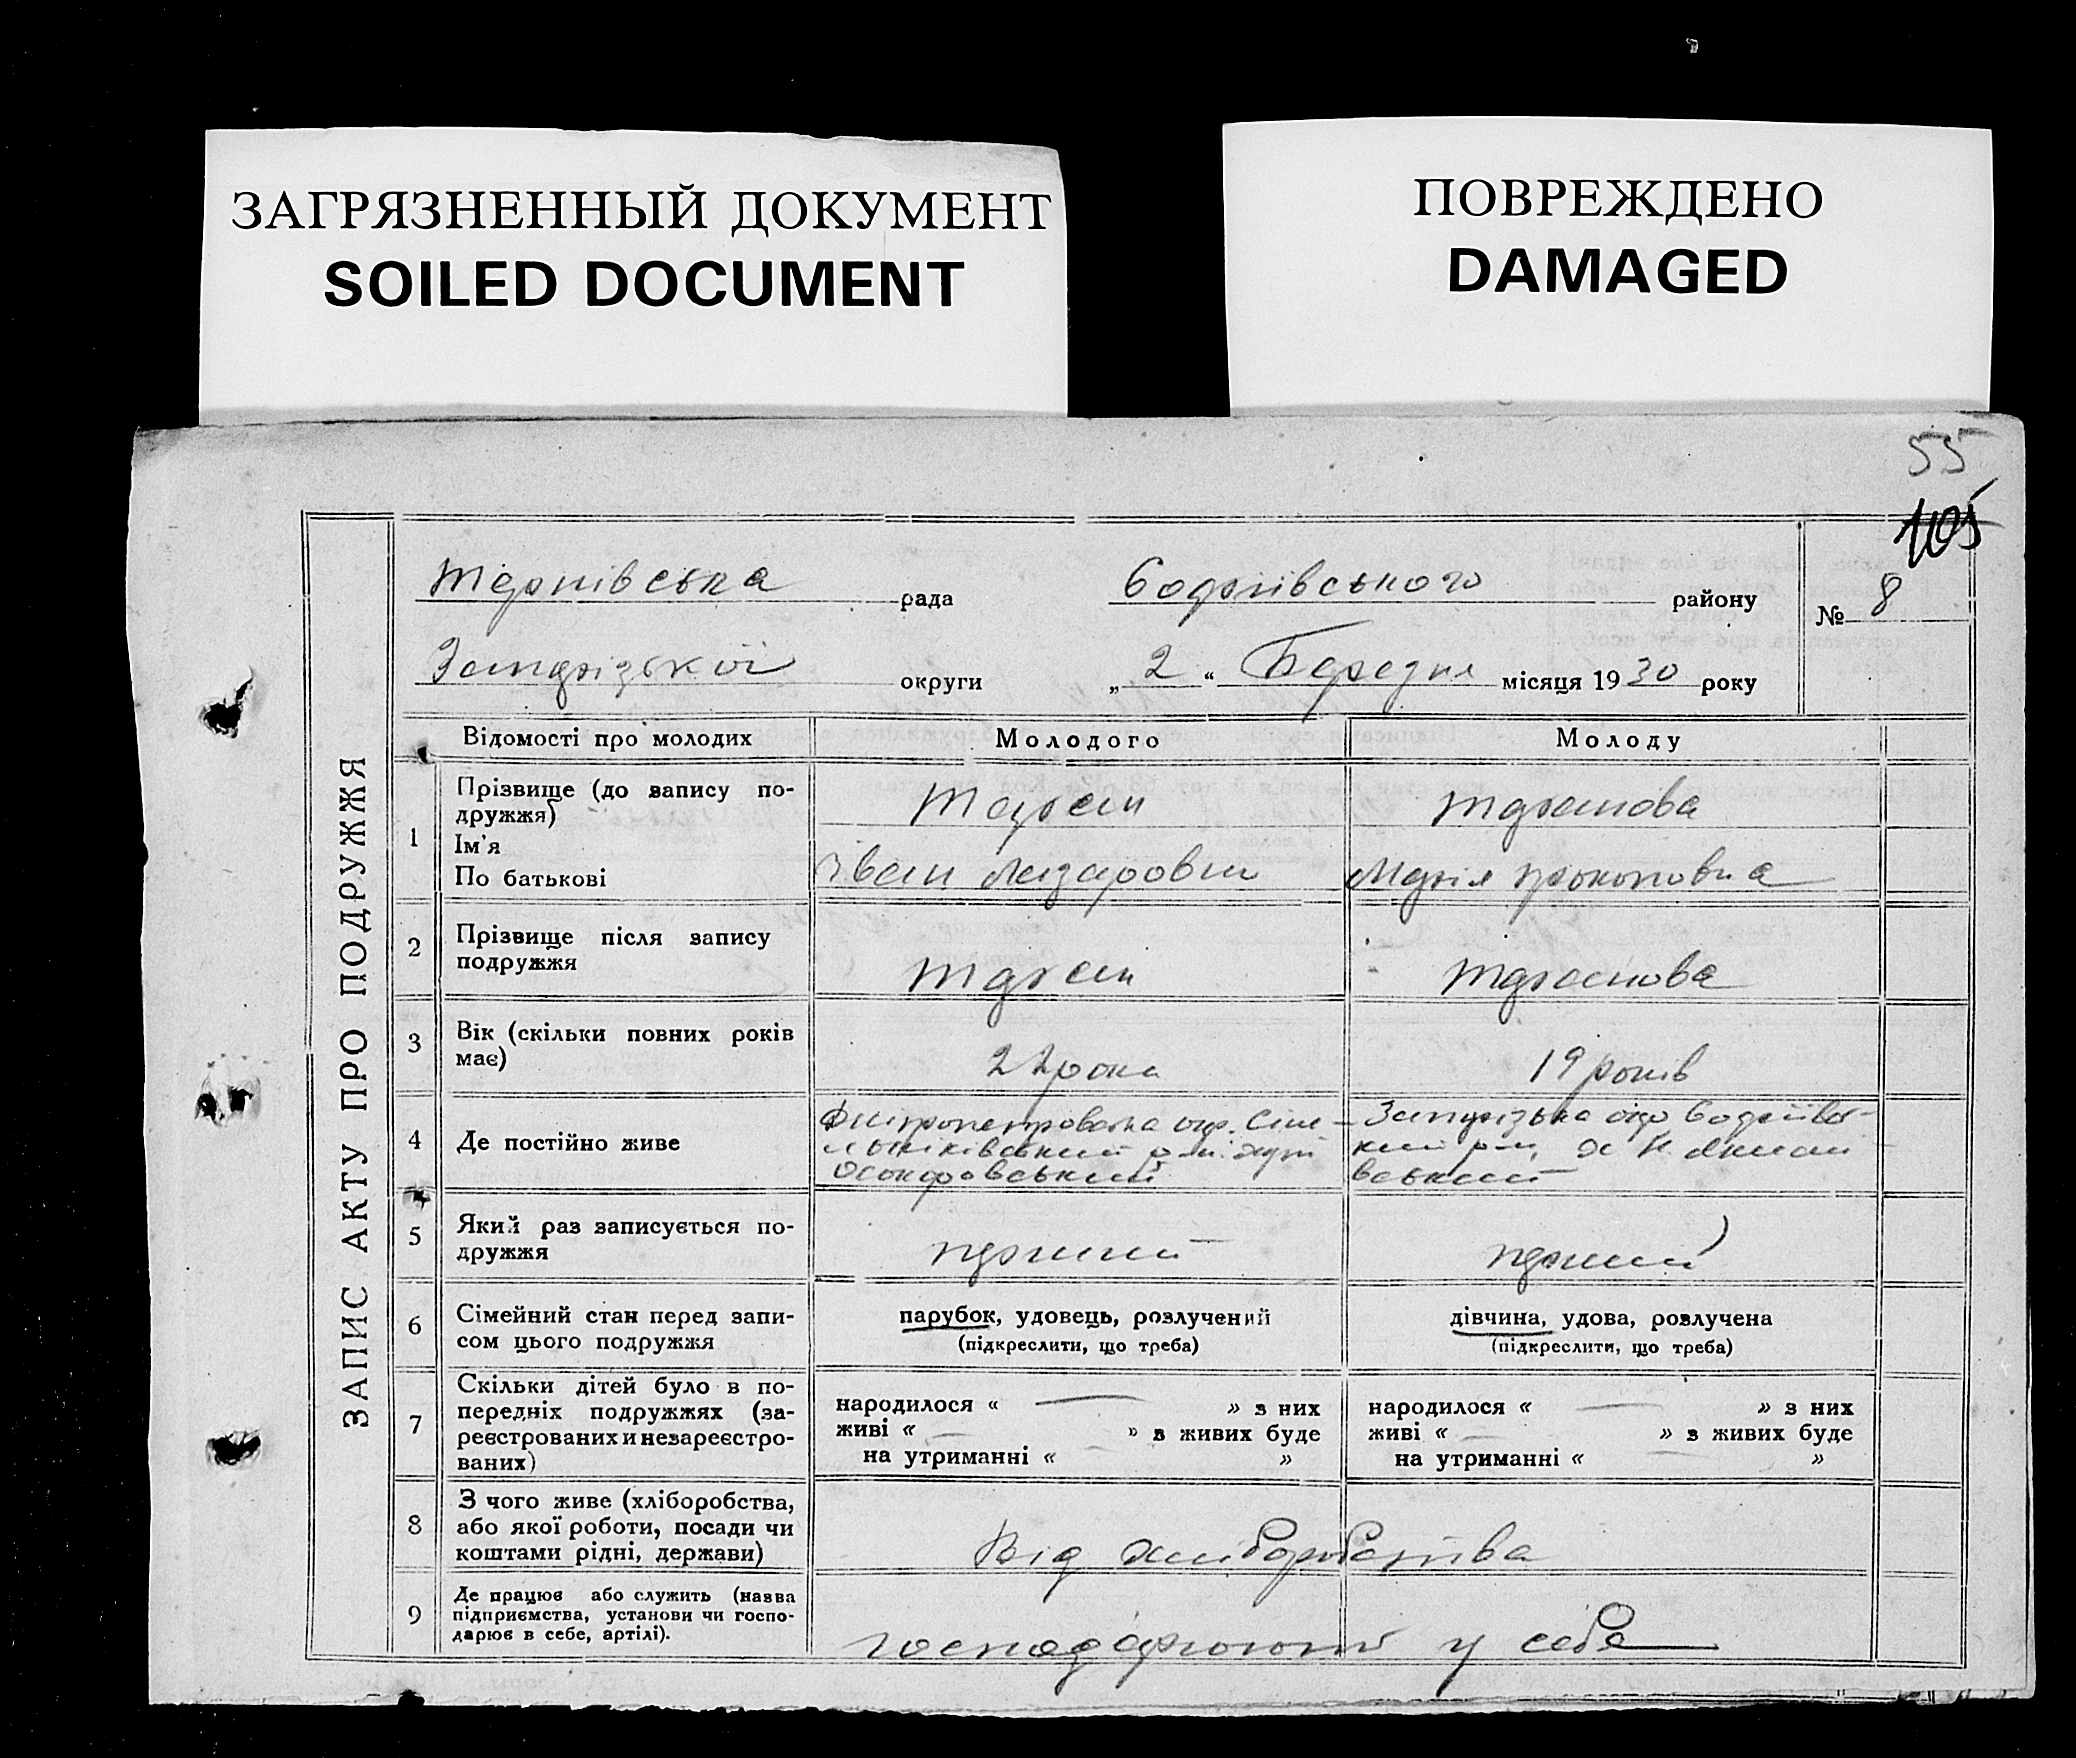 ЗАГРЯЗНЕННЫЙ ДОКУМЕНТ
SOILED DOCUMENT
ПОВРЕЖДЕНО
DAMAGED
55
105
рада
району
№ 8
округи
„ 2 “ Березня місяця 1930 року
ЗАПИС АКТУ ПРО ПОДРУЖЖЯ
Відомості про молодих Молодого Молоду
1 Прізвище (до запису по-
дружжя)
Ім'я
По батькові
Іван Лазарович Марія Прокоповна
2 Прізвище після запису
подружжя
3 Вік (скільки повних років
має)
22 роки 19 років
4 Де постійно живе
5 Який раз записується по-
дружжя
перший перший
6 Сімейний стан перед запи-
сом цього подружжя
парубок, удовець, розлучений
(підкреслити, що треба)
дівчина, удова, розлучена
(підкреслити, що треба)
7 Скільки дітей було в по-
передніх подружжях (за-
реєстрованих и незареєстро-
ваних)
народилося « — » з них
живі « — » з живих буде
на утриманні « »
народилося « — » з них
живі « — » з живих буде
на утриманні « »
8 З чого живе (хліборобства,
або якої роботи, посади чи
коштами рідні, держави)
Від хліборобства
9 Де працює або служить (назва
підприємства, установи чи госпо-
дарює в себе, артілі).
господарюють у себе